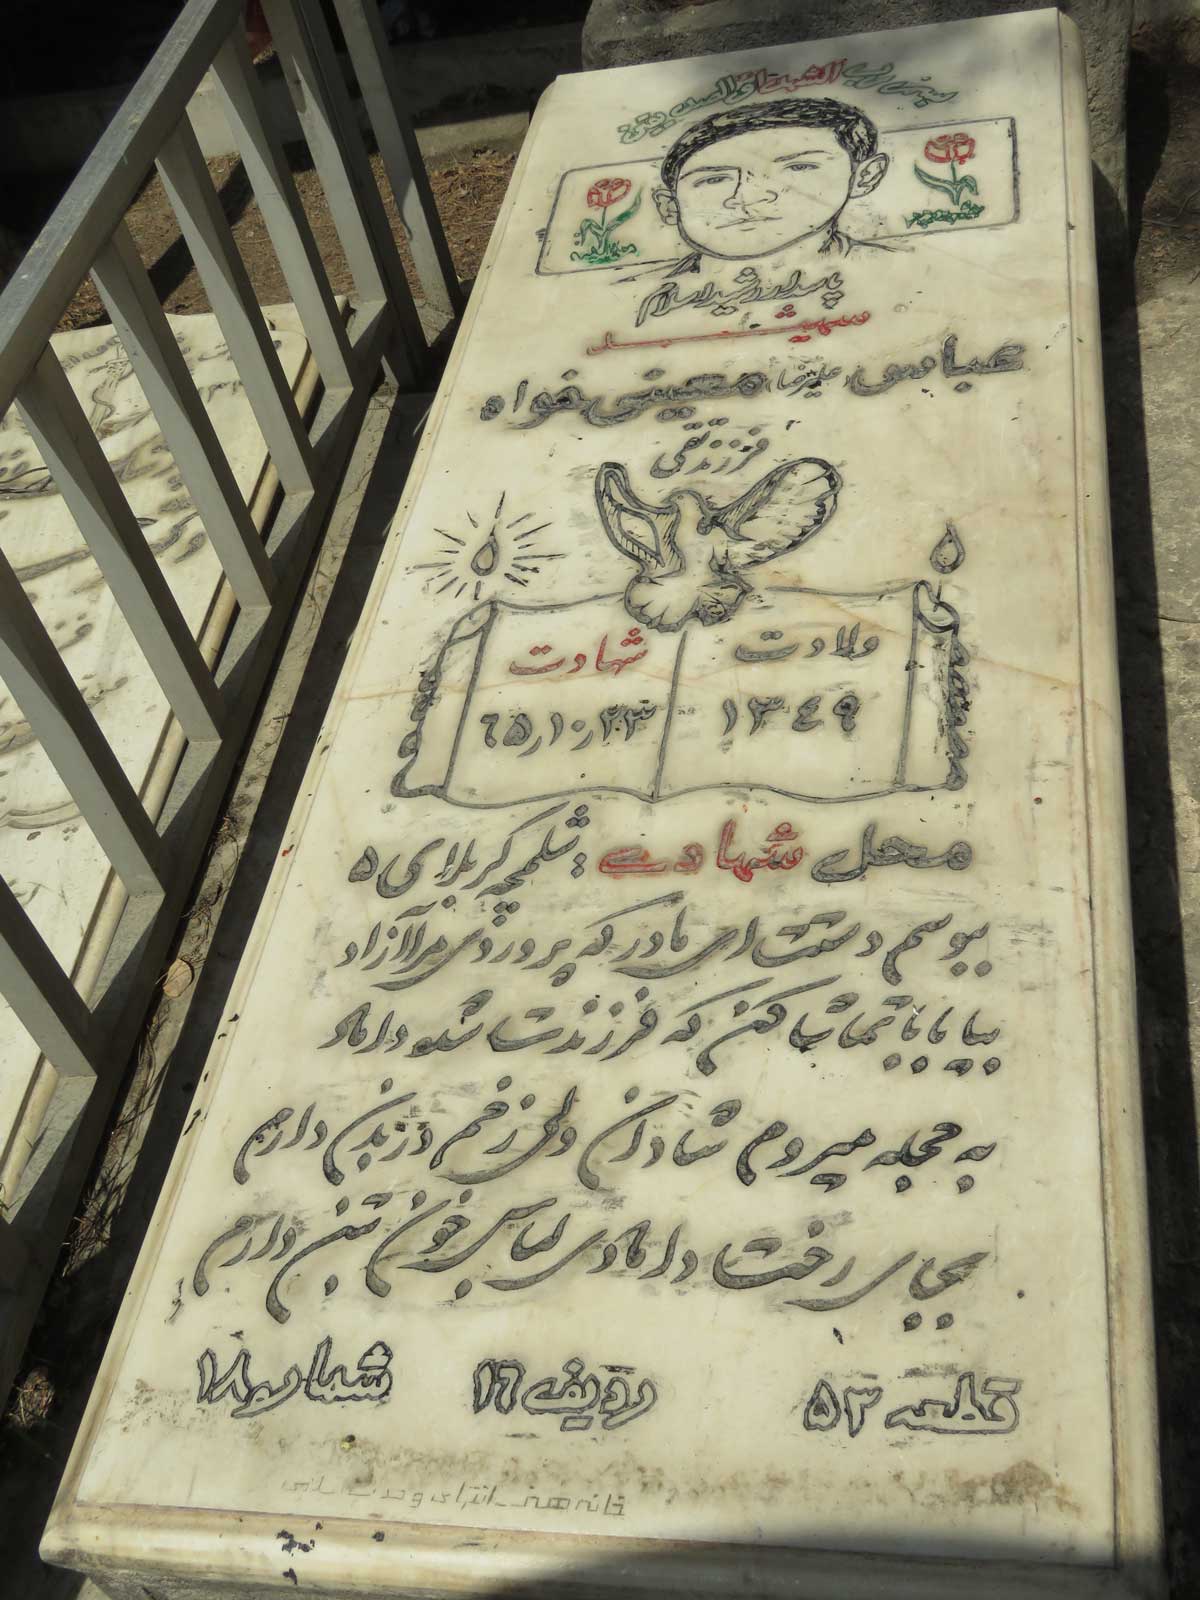 بسم رب الشهداء والصدیقین
پاسدار رشید اسلام
شهید
عباس (علیرضا) معینی خواه
فرزند تقی
ولادت
۱۳۴۹
شهادت
۶۵٫۱۰٫۲۳
محل شهادت : شلمچه کربلای ۵
ببوسم دستت ای مادر که پروردی مرا آزاد
بیا بابا تماشا کن که فرزندت شده داماد
به حجله میروم شادان ولی زخم در بدن دارم
بجای رخت دامادی لباس خون بتن دارم
قطعه ۵۳
ردیف ۱۶
شماره ۱۸